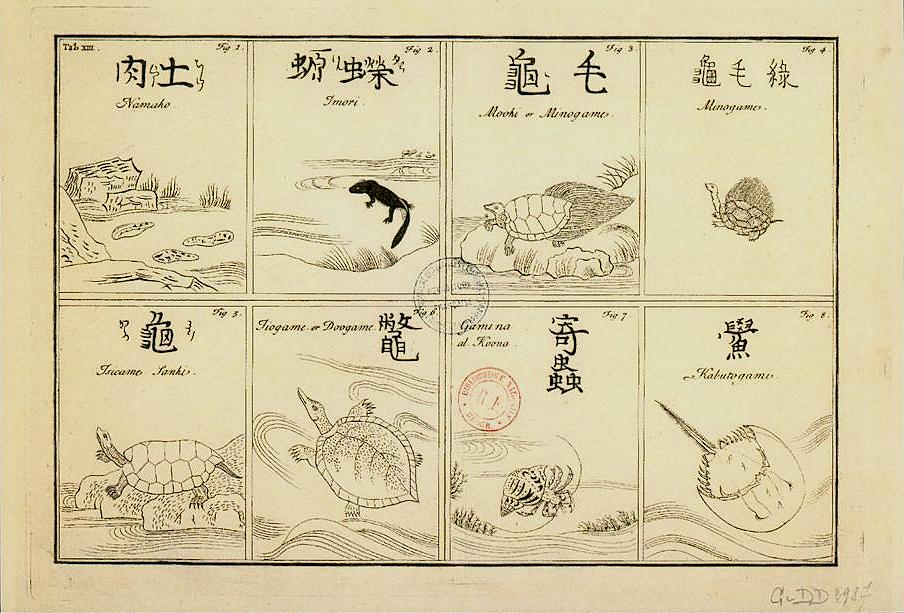 Tab XIII.
Fig 1.
肉 土
Namako.
Fig 2.
Imori.
Fig 3
龜 毛
Mooki or Minogame.
Fig 4.
龜毛緑
Minogame.
Fig 5
龜
Isicame Sanki.
Jiogame or Doogame.
鼈
Gamina
al. Koona.
Fig 7
寄
蟲
Fig 8.
鱟
Kabutogani.